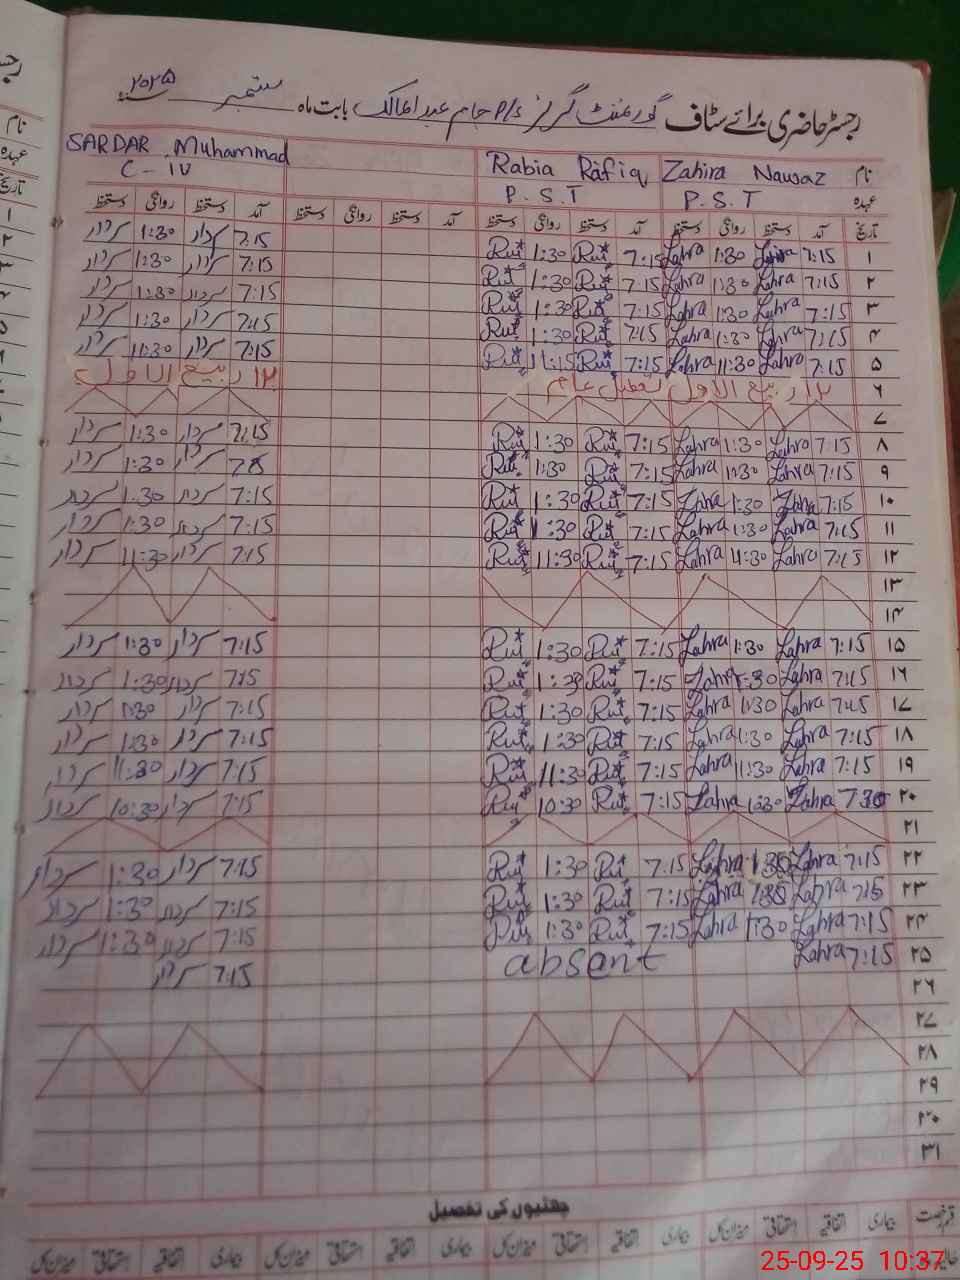 رجسٹر حاضری برائے سٹاف گورنمنٹ گرلز P/S جام عبدالمالک بابت ماہ ستمبر سنہ ۲۰۲۵
نام Zahira Nawaz Rabia Rafiq SARDAR Muhammad
عہدہ P.S.T P.S.T C-IV
تاریخ آمد دستخط روانگی دستخط آمد دستخط روانگی دستخط آمد دستخط روانگی دستخط آمد دستخط روانگی دستخط
۱ 7:15 Zahra 1:30 Zahra 7:15 1:30 7:15 سردار 1:30 سردار
۲ 7:15 Zahra 1:30 Zahra 7:15 1:30 7:15 سردار 1:30 سردار
۳ 7:15 Zahra 1:30 Zahra 7:15 1:30 7:15 سردار 1:30 سردار
۴ 7:15 Zahra 1:30 Zahra 7:15 1:30 7:15 سردار 1:30 سردار
۵ 7:15 Zahra 11:30 Zahra 7:15 11:15 7:15 سردار 11:30 سردار
۶ ۱۲ ربیع الاول تعطیل عام ۱۲ ربیع الاول
۷
۸ 7:15 Zahra 1:30 Zahra 7:15 1:30 7:15 سردار 1:30 سردار
۹ 7:15 Zahra 1:30 Zahra 7:15 1:30 سردار 1:30 سردار
۱۰ 7:15 Zahra 1:30 Zahra 7:15 1:30 7:15 سردار 1:30 سردار
۱۱ 7:15 Zahra 1:30 Zahra 7:15 1:30 7:15 سردار 1:30 سردار
۱۲ 7:15 Zahra 11:30 Zahra 7:15 11:30 7:15 سردار 11:30 سردار
۱۳
۱۴
۱۵ 7:15 Zahra 1:30 Zahra 7:15 1:30 7:15 سردار 1:30 سردار
۱۶ 7:15 Zahra 1:30 Zahra 7:15 1:30 7:15 سردار 1:30 سردار
۱۷ 7:15 Zahra 1:30 Zahra 7:15 1:30 7:15 سردار 1:30 سردار
۱۸ 7:15 Zahra 1:30 Zahra 7:15 1:30 7:15 سردار 1:30 سردار
۱۹ 7:15 Zahra 11:30 Zahra 7:15 11:30 7:15 سردار 11:30 سردار
۲۰ 7:30 Zahra Zahra 7:15 10:30 7:15 سردار 10:30 سردار
۲۱
۲۲ 7:15 Zahra 1:30 Zahra 7:15 1:30 7:15 سردار 1:30 سردار
۲۳ 7:15 Zahra 1:30 Zahra 7:15 1:30 7:15 سردار 1:30 سردار
۲۴ 7:15 Zahra 1:30 Zahra 7:15 1:30 7:15 سردار 1:30 سردار
۲۵ 7:15 Zahra absent 7:15 سردار
۲۶
۲۷
۲۸
۲۹
۳۰
۳۱
چھٹیوں کی تفصیل
قسم رخصت بیماری اتفاقیہ استحقاقی میزان کل بیماری اتفاقیہ استحقاقی میزان کل بیماری اتفاقیہ استحقاقی میزان کل بیماری اتفاقیہ استحقاقی میزان کل
25-09-25 10:37